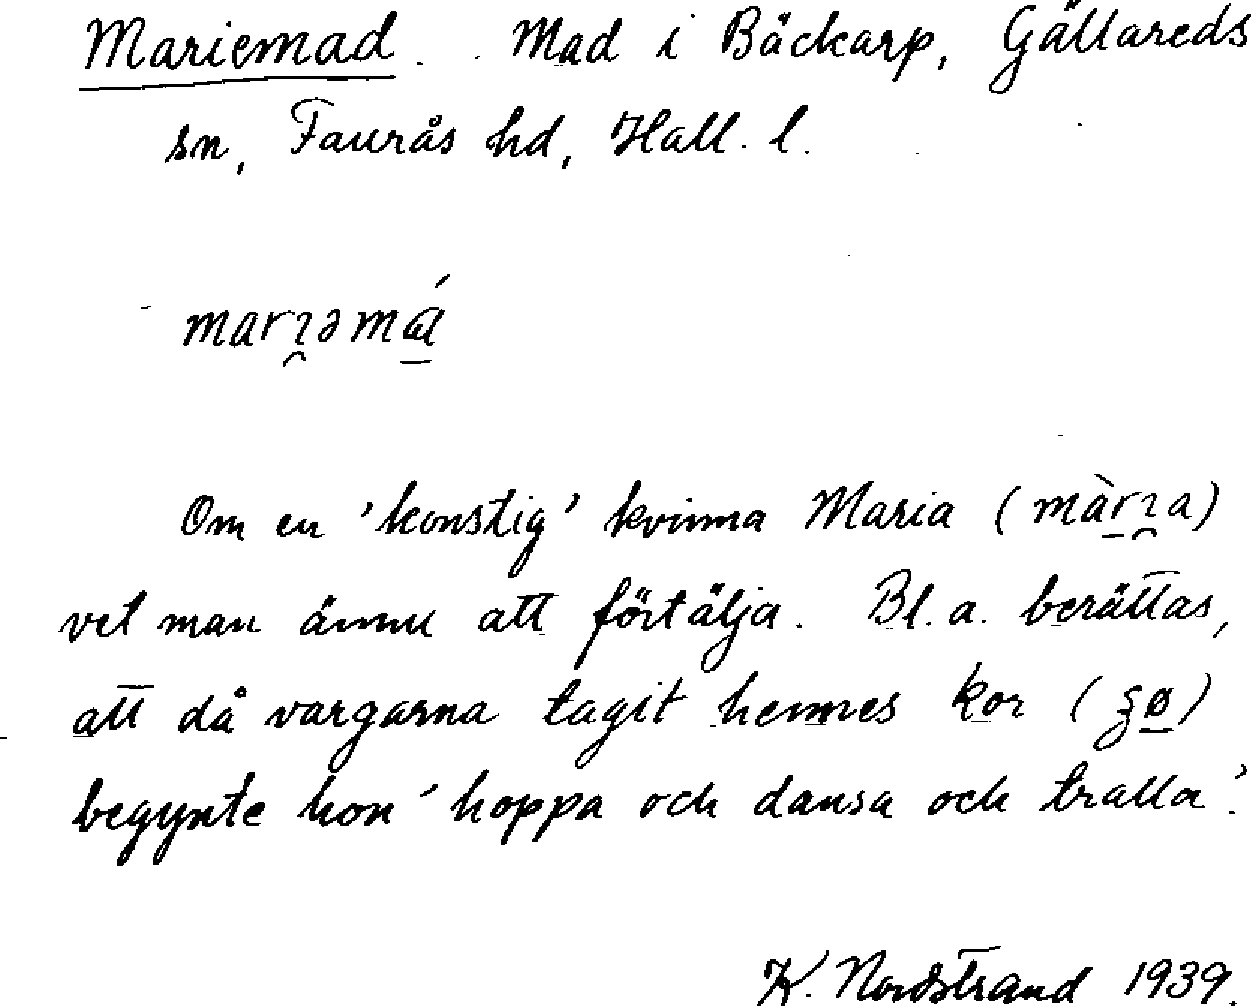 Mariemad. Mad i Bäckarp, Gällareds
sn, Faurås hd, Hall. l.
Om en 'konstig' kvinna Maria
vet man ännu att förtälja. Bl. a. berättas,
att då vargarna tagit hennes kor
begynte hon 'hoppa och dansa och tralla'.
K. Nordstrand 1939.